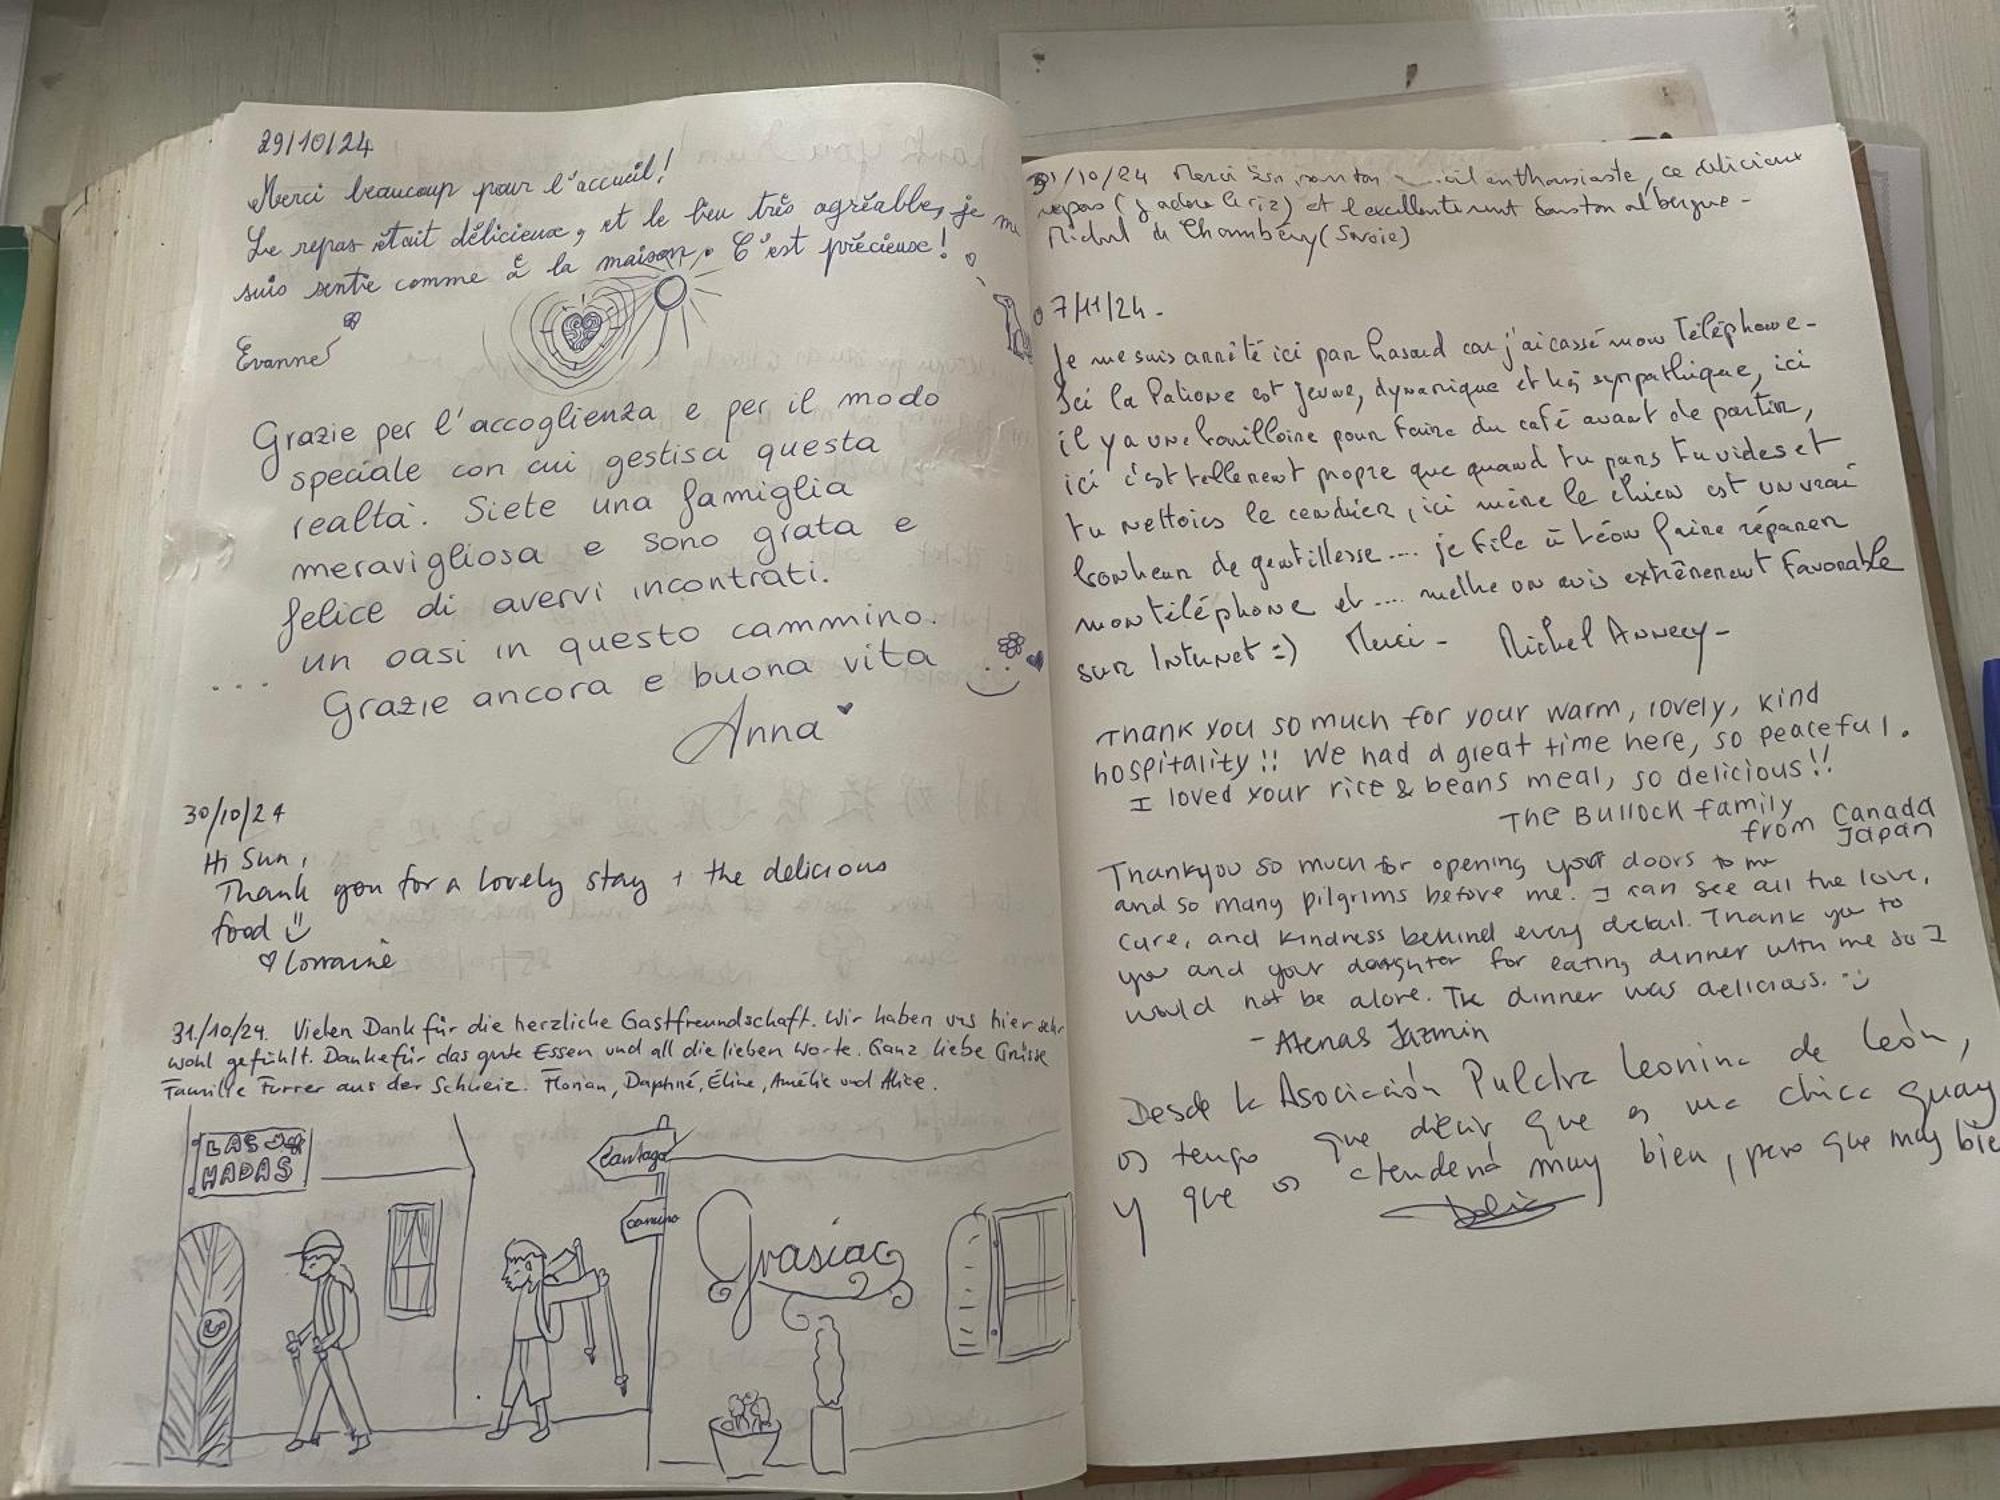 29/10/24
Merci beaucoup pour l'accueil!
Le repas était délicieux, et le lieu très agréable, je me
suis sentie comme à la maison. C'est précieuse!
Evanne
Grazie per l'accoglienza e per il modo
speciale con cui gestisci questa
realtà. Siete una famiglia
meravigliosa e sono grata e
felice di avervi incontrati.
... un oasi in questo cammino.
Grazie ancora e buona vita
Anna
30/10/24
Hi Sun,
Thank you for a lovely stay + the delicious
food
Lorraine
31/10/24. Vielen Dank für die herzliche Gastfreundschaft. Wir haben uns hier sehr
wohl gefühlt. Danke für das gute Essen und all die lieben Worte. Ganz liebe Grüsse
Familie Furrer aus der Schweiz. Florian, Daphné, Éline, Amélie und Alice.
LAS
HADAS
Santiago
camino
Grasias
31/10/24 Merci Sun pour ton enthousiaste, ce délicieux
repas (j'adore le riz) et l'excellente nuit dans ton albergue -
Michel de Chambéry (Savoie)
07/11/24.
Je me suis arrêté ici par hasard car j'ai cassé mon Téléphone -
Ici la Patione est jeune, dynamique et très sympathique, ici
il y a une bouilloire pour faire du café avant de partir,
ici c'est tellement propre que quand tu pars tu vides et
tu nettoies le cendrier, ici même le chien est un vrai
bonheur de gentillesse .... je file à Léon faire réparer
mon téléphone et .... mettre un avis extrêmement favorable
sur Internet =) Merci - Michel Annecy -
Thank you so much for your warm, lovely, kind
hospitality!! We had a great time here, so peaceful.
I loved your rice & beans meal, so delicious!!
The Bullock family
from Canada
Japan
Thankyou so much for opening your doors to me
and so many pilgrims before me. I can see all the love,
care, and kindness behind every detail. Thank you to
you and your daughter for eating dinner with me so I
would not be alone. The dinner was delicious. :)
- Atenas Jazmin
Desde la Asociación Pulchra Leonina de León,
os tengo que decir que es una chica guay
y que os atenderá muy bien, pero que muy bie